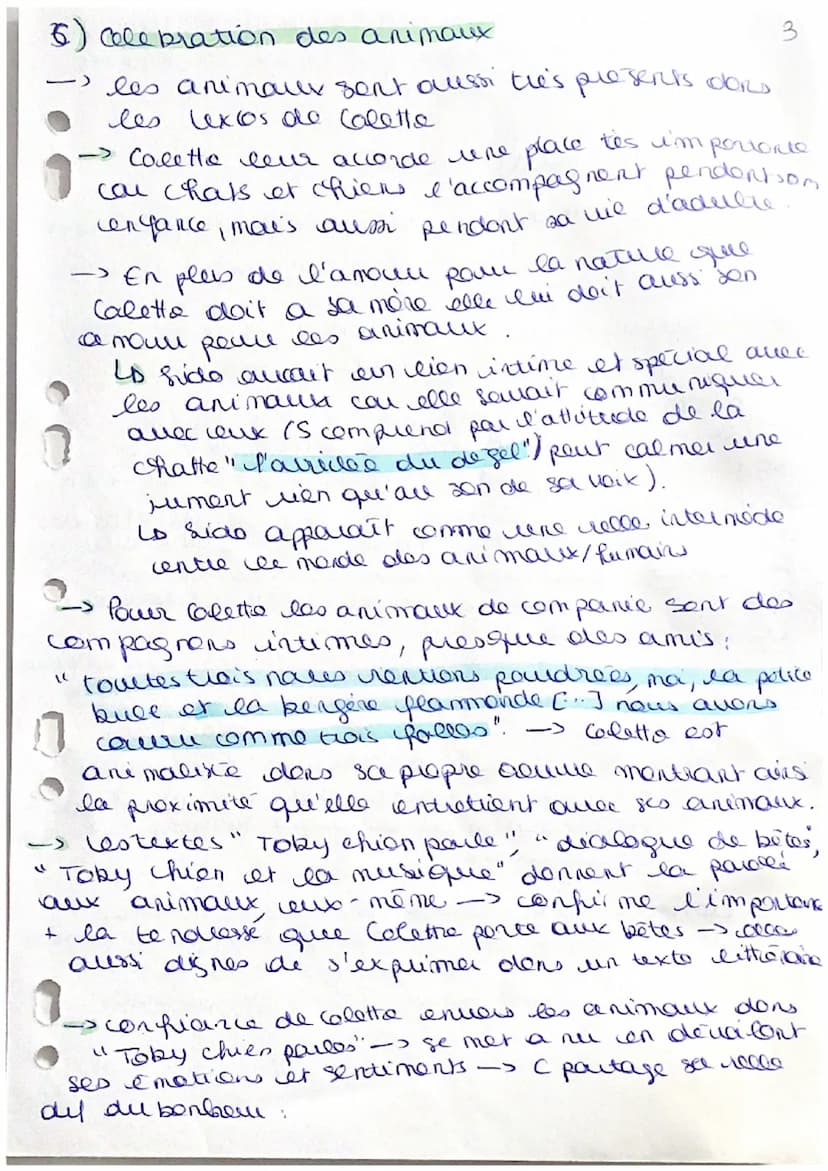 5) Celebration des animaux
3
→ les animaux sont aussi très présents dans
les textes de Colette
→ Colette leur accorde une place tès importante
car chats et chiens l'accompagnent pendant son
enfance, mais aussi pendant sa vie d'adulte.
→ En plus de l'amour pour la nature que
Colette doit a sa mère elle lui doit aussi son
amour pour les animaux.
↳ Sido aurait un lien intime et special avec
les animaux car elle savait communiquer
avec eux (S comprend par l'attitude de la
chatte "l'arrivée du degel") peut calmer une
jument rien qu'au son de sa voix).
↳ Sido apparaît comme une reelle intermède
entre le monde des animaux/humains
→ Pour Colette les animaux de companie sont des
compagnons intimes, presque des amis:
"toutes trois nous rentrons poudrées, moi, la petite
bull et la bergère flammande [...] nous avons
couru comme trois folles". → Colette est
animalisée dans sa propre oeuvre montrant ains
la proximité qu'elle entretient avec ses animaux.
→ les textes "Toby chien parle", "dialogue de bêtes",
"Toby chien et la musique" donnent la parole
aux animaux eux-même → confirme l'importance
+ la tendresse que Colette porte aux bêtes →
aussi dignes de s'exprimer dans un texte littéraire
→ confiance de Colette envers les animaux dans
"Toby chien parle" → se met a nu en dévoilant
ses émotions et sentiments → C partage sa reelle
def du bonheur :